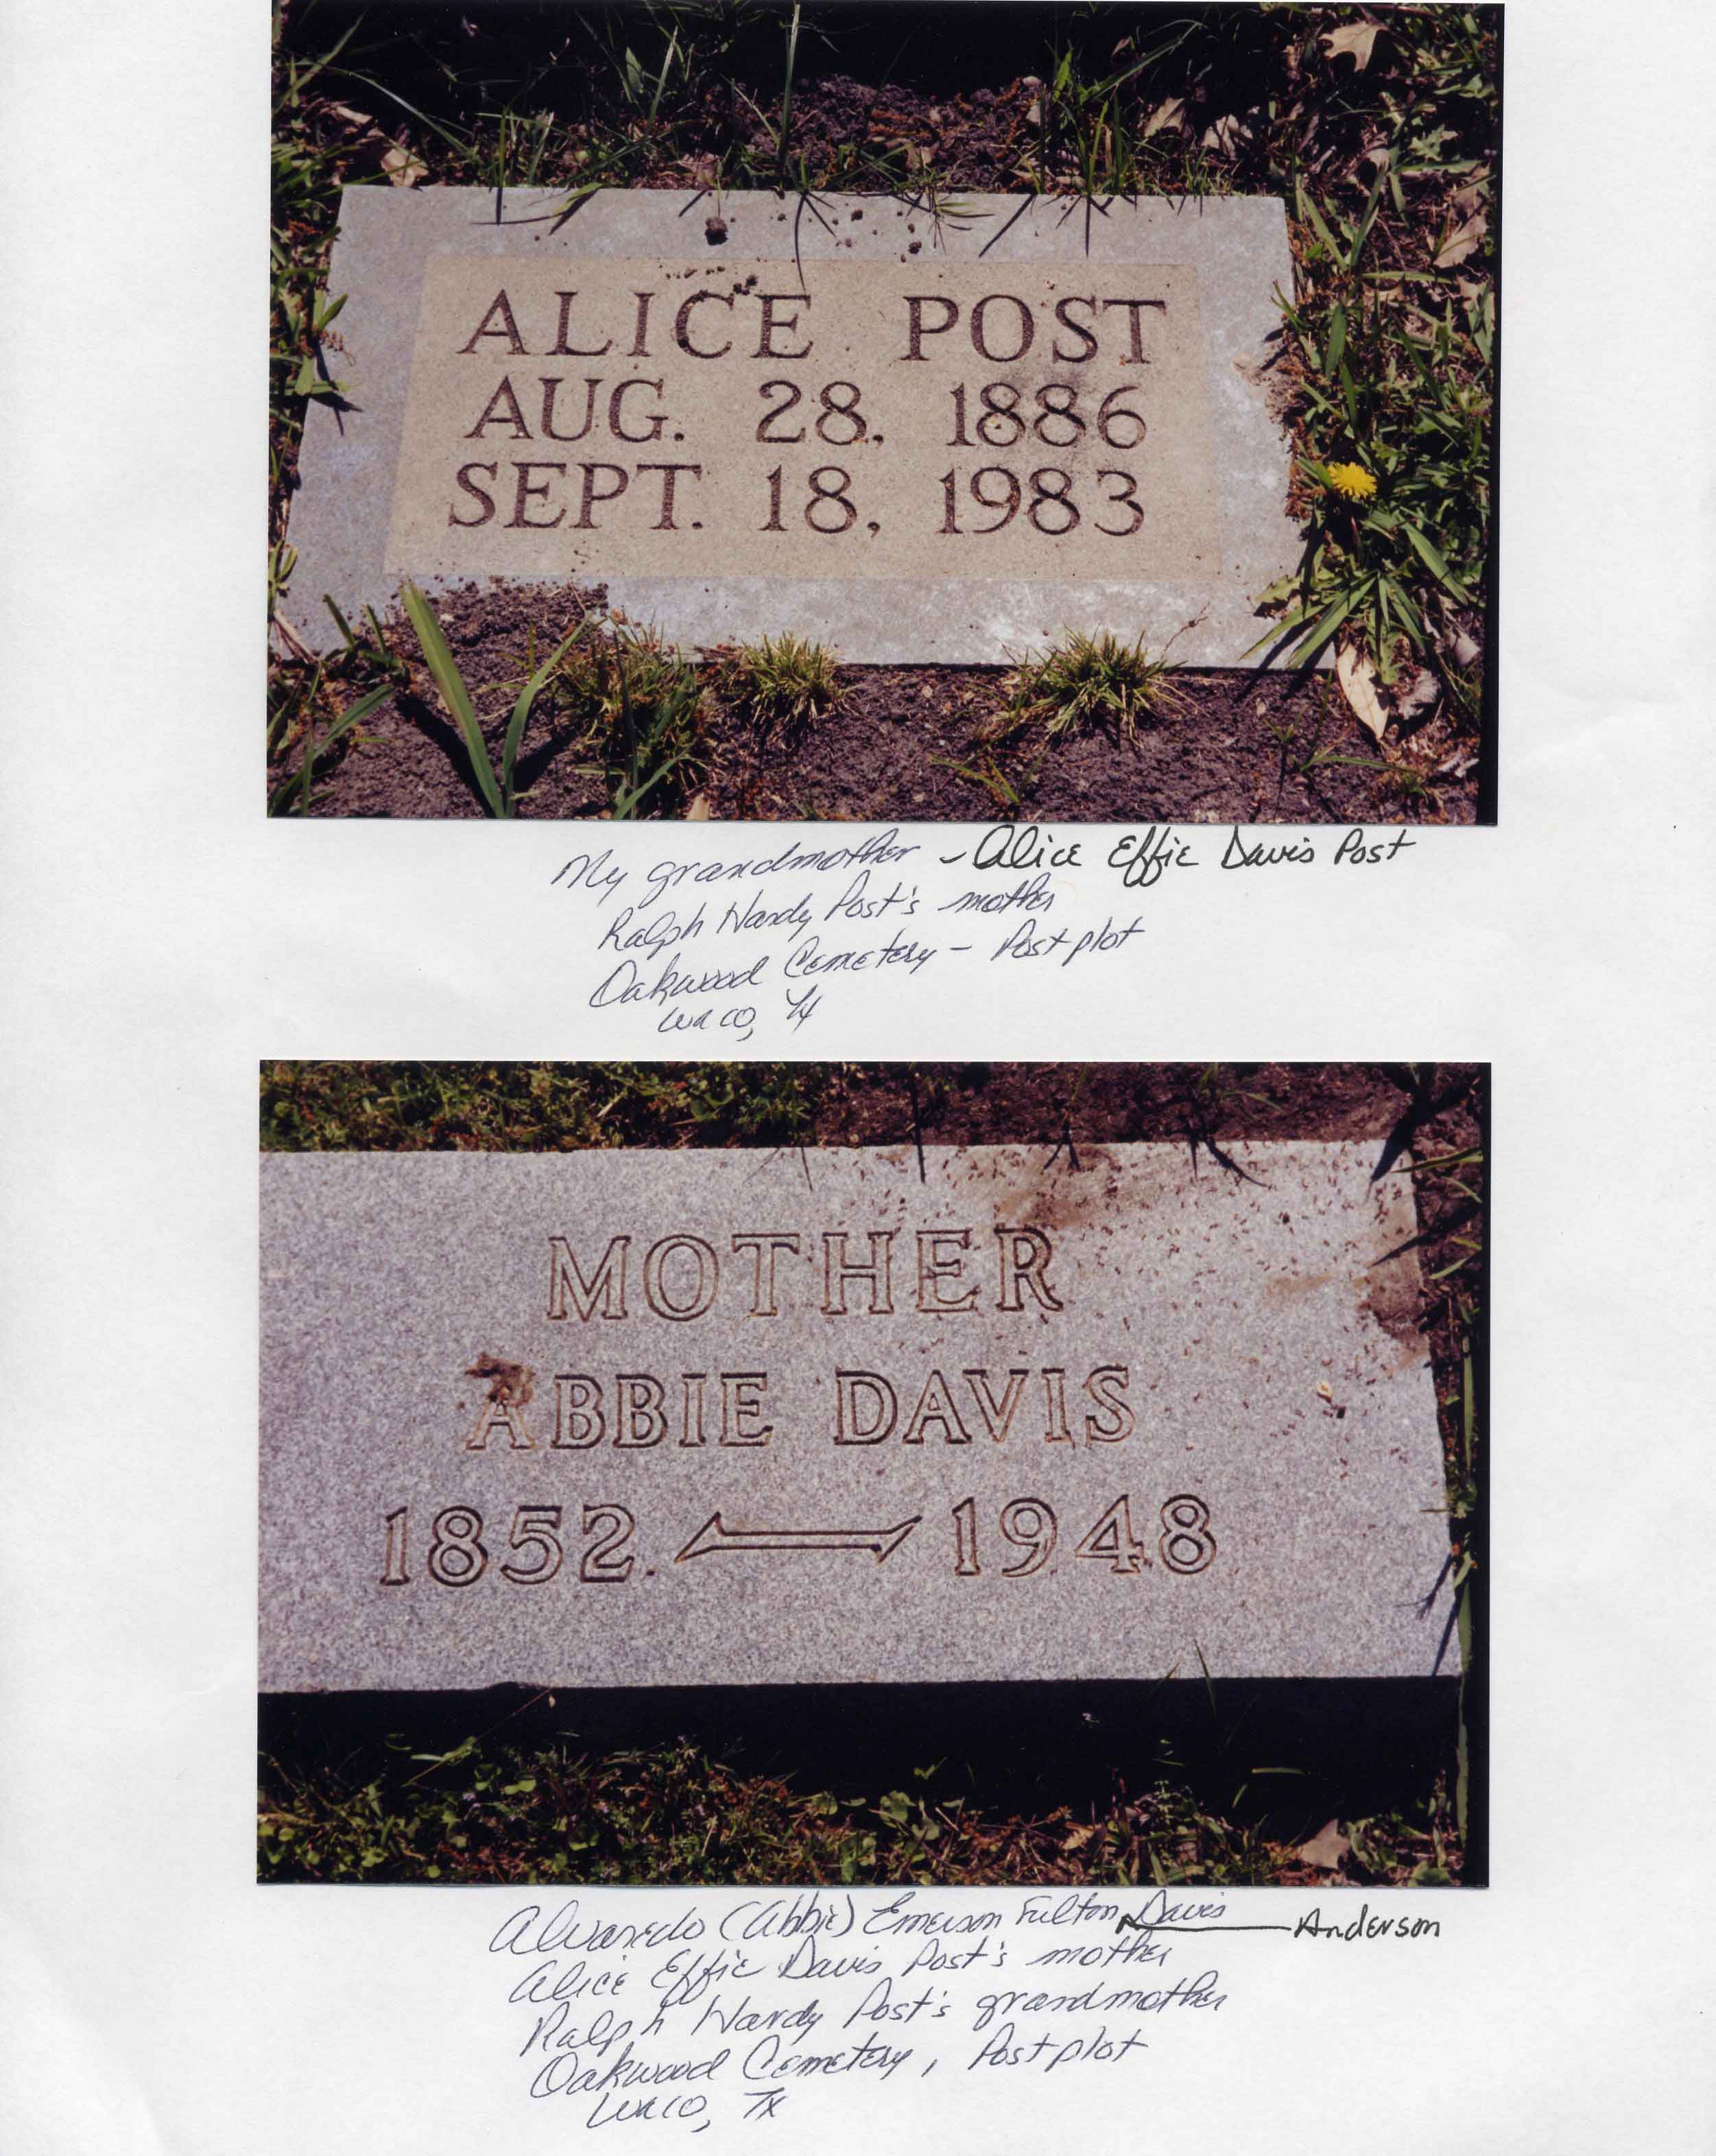 ALICE POST
AUG. 28, 1886
SEPT. 18, 1983
My grandmother - Alice Effie Davis Post
Ralph Hardy Post's mother
Oakwood Cemetery - Post plot
Waco, TX
MOTHER
ABBIE DAVIS
1852 1948
Alvaredo (Abbie) Emerson Fulton Davis Anderson
Alice Effie Davis Post's mother
Ralph Hardy Post's grandmother
Oakwood Cemetery, Post plot
Waco, TX